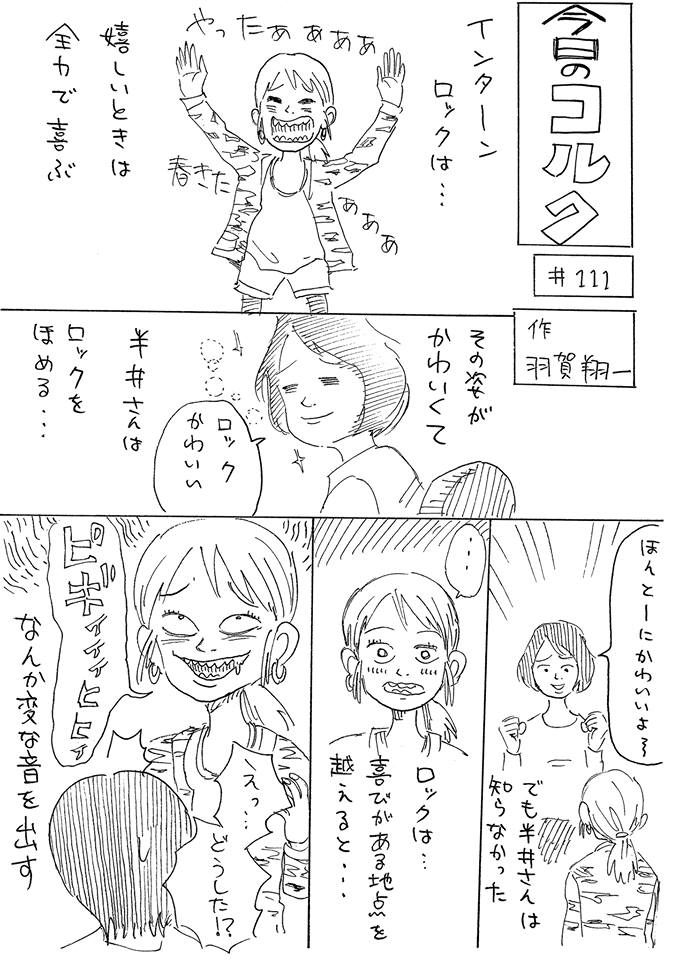 今日のコルク
#111
作
羽賀翔一
インターン
ロックは…
やったぁぁぁぁぁ
春きた
ぁぁぁ
嬉しいときは
全力で喜ぶ
その姿が
かわいくて
半井さんは
ロックを
ほめる…
ロック
かわいい
ほんとーにかわいいよ〜
でも半井さんは
知らなかった
…
ロックは…
喜びがある地点を
越えると…
ピギィィィヒヒィ
えっ…
どうした!?
なんか変な音を出す